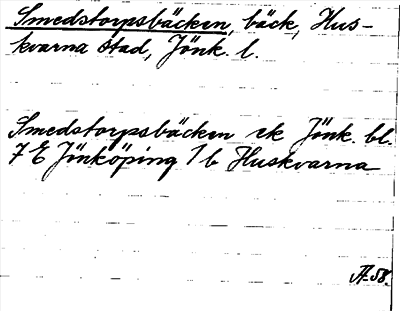 Smedstorpsbäcken, bäck, Hus-
kvarna stad, Jönk. l.
Smedstorpsbäcken ek Jönk. bl.
7 E Jönköping 1 b Huskvarna